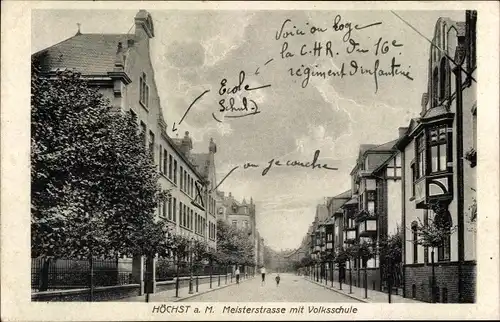 Voici ou loge
la C.H.R. du 16e
régiment d'infanterie
Ecole
Schul
ou je couche
HÖCHST a. M. Meisterstrasse mit Volksschule